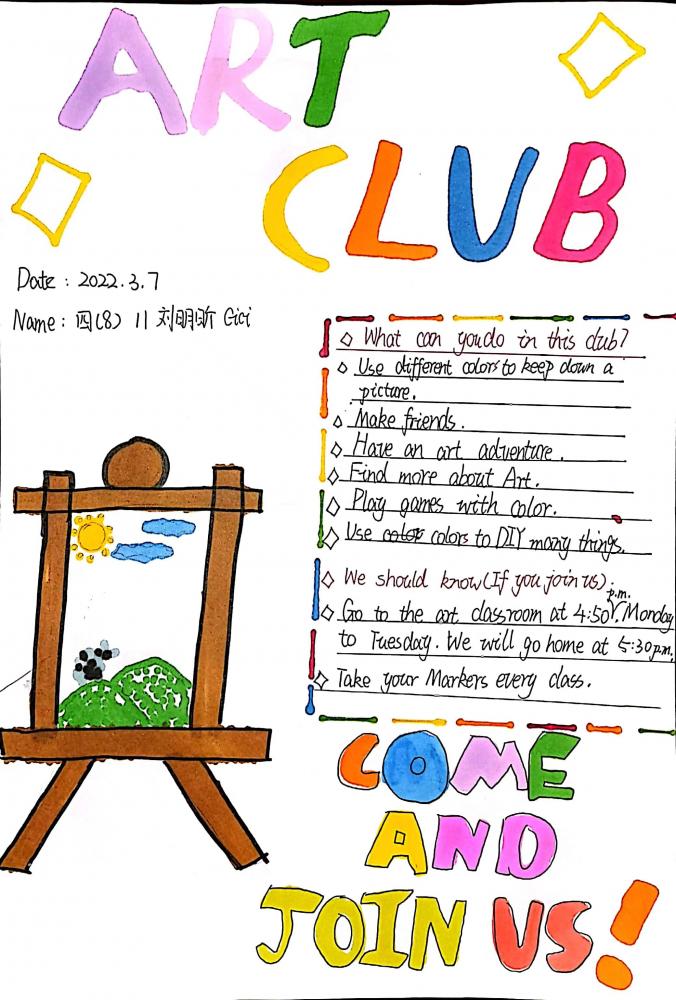 ART
CLUB
Date : 2022.3.7
Name : 四(8) 11 刘明昕 Cici
What can you do in this club?
Use different colors to keep down a
picture.
Make friends.
Have an art adventure.
Find more about Art.
Play games with color.
Use color colors to DIY many things.
We should know (If you join us):
Go to the art classroom at 4:50 p.m. Monday
to Tuesday. We will go home at 5:30 p.m.
Take your Markers every class.
COME
AND
JOIN US!